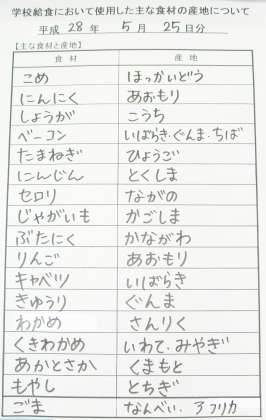 学校給食において使用した主な食材の産地について
平成 28 年 5 月 25 日分
【主な食材と産地】
食材 産地
こめ ほっかいどう
にんにく あおもり
しょうが こうち
ベーコン いばらき・ぐんま・ちば
たまねぎ ひょうご
にんじん とくしま
セロリ ながの
じゃがいも かごしま
ぶたにく かながわ
りんご あおもり
キャベツ いばらき
きゅうり ぐんま
わかめ さんりく
くきわかめ いわて・みやぎ
あかとさか くまもと
もやし とちぎ
ごま なんべい・アフリカ